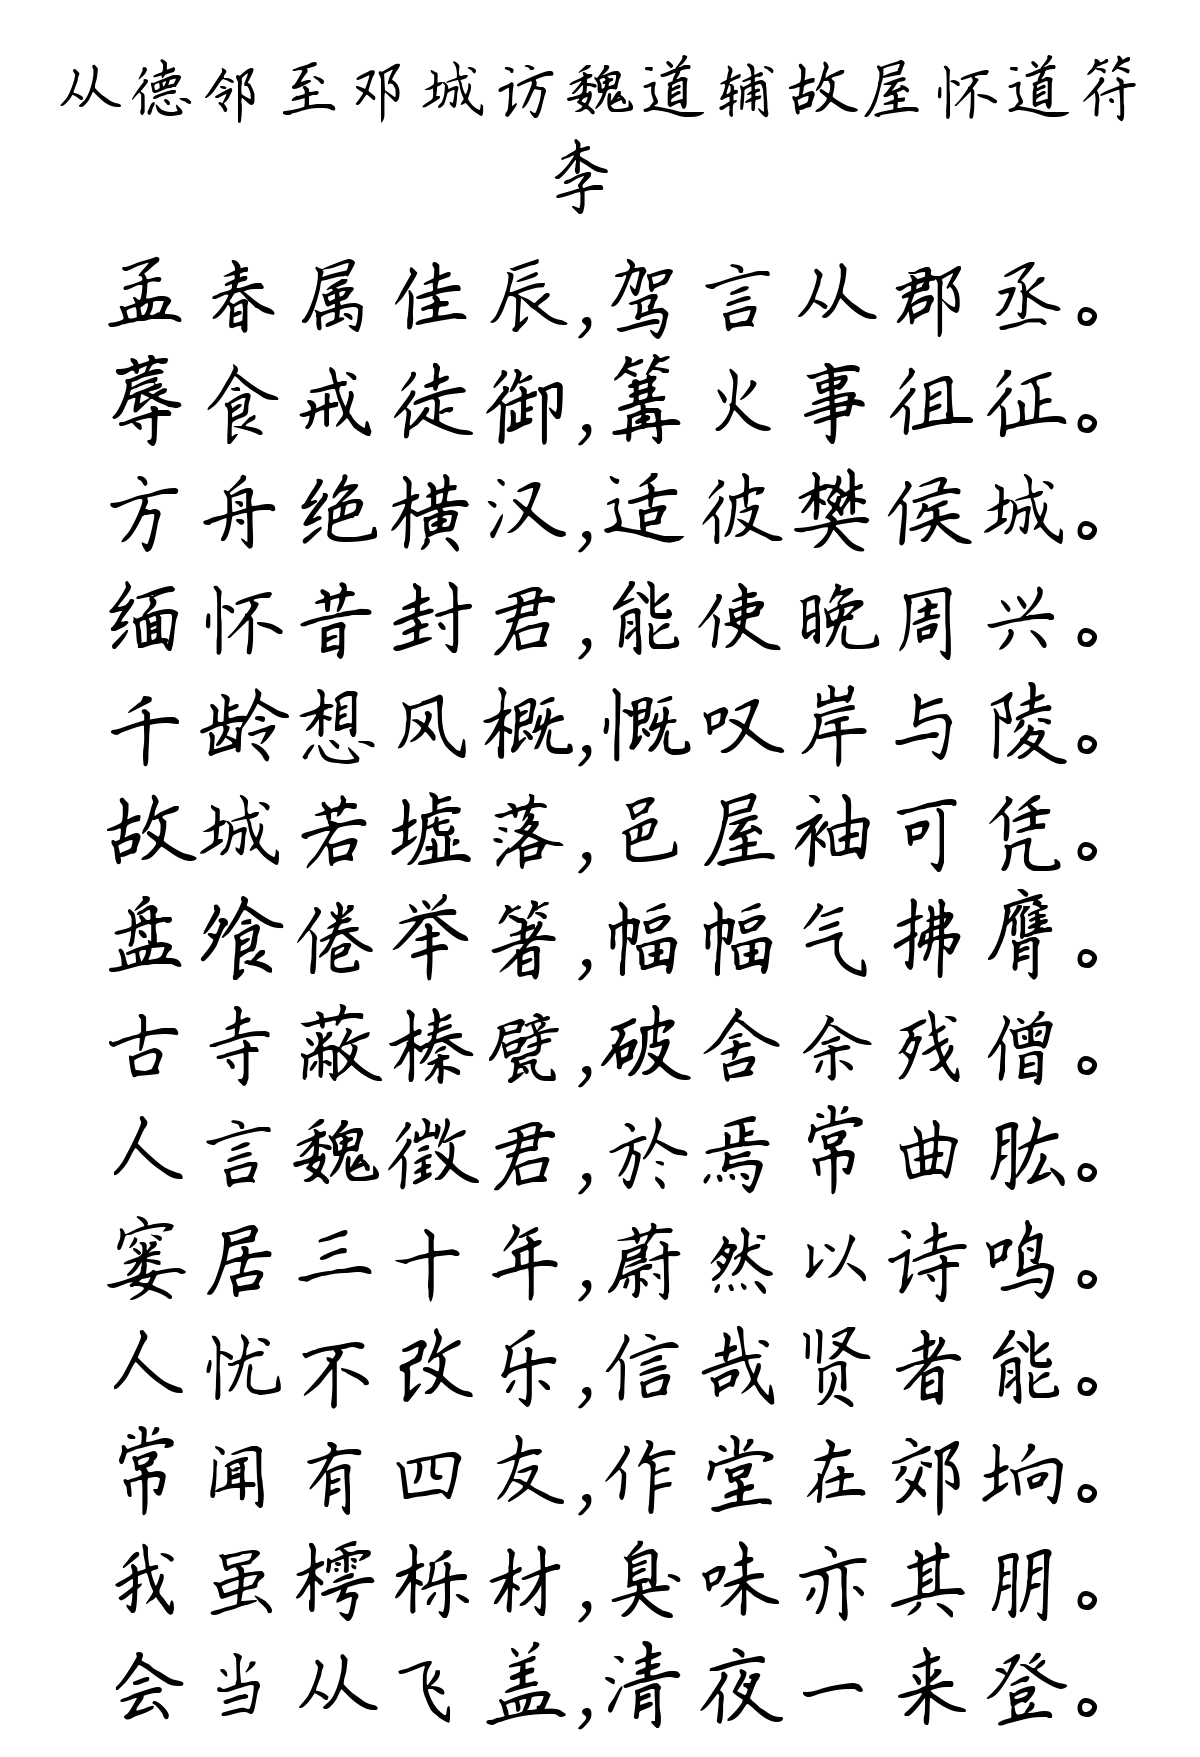 从德邻至邓城访魏道辅故屋怀道符
李
孟春属佳辰,驾言从郡丞。
蓐食戒徒御,篝火事徂征。
方舟绝横汉,适彼樊侯城。
缅怀昔封君,能使晚周兴。
千龄想风概,慨叹岸与陵。
故城若墟落,邑屋袖可凭。
盘飧倦举箸,幅幅气拂膺。
古寺蔽榛甓,破舍余残僧。
人言魏徵君,於焉常曲肱。
窭居三十年,蔚然以诗鸣。
人忧不改乐,信哉贤者能。
常闻有四友,作堂在郊坰。
我虽樗栎材,臭味亦其朋。
会当从飞盖,清夜一来登。